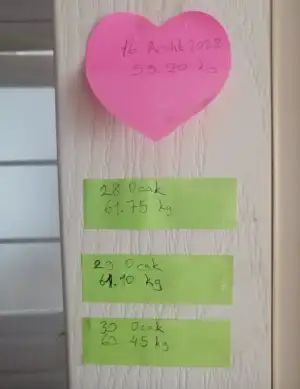 16 Aralık 2023
59.20 kg
28 Ocak
61.75 kg
29 Ocak
61.10 kg
30 Ocak
60.45 kg